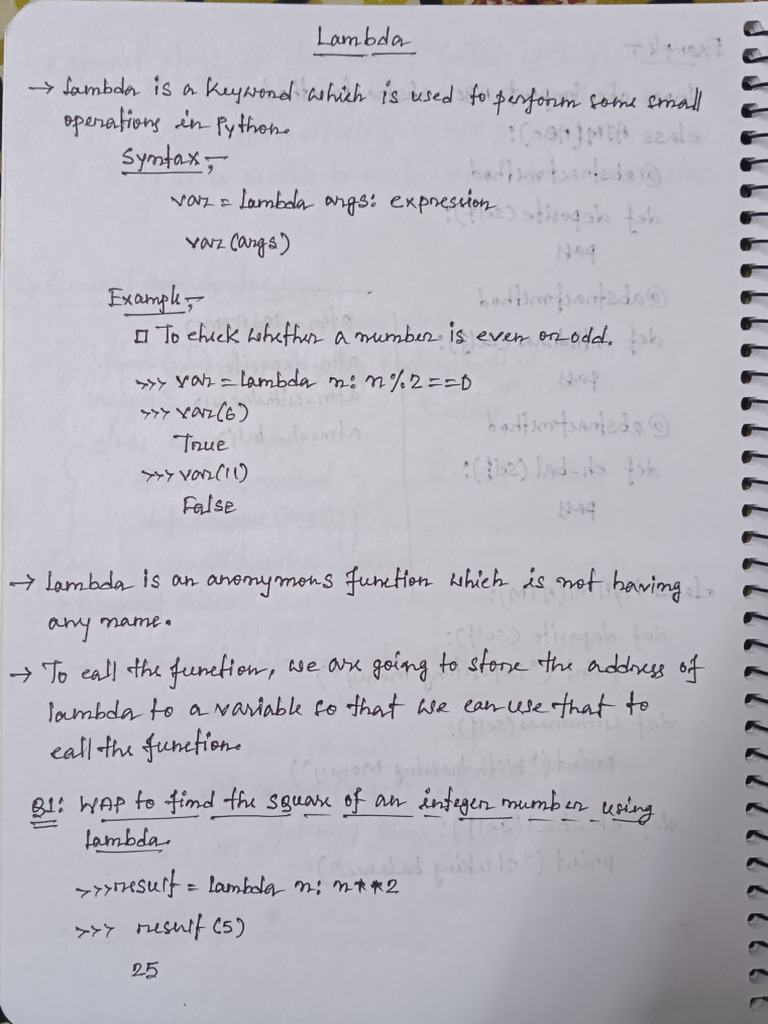 Lambda
→ Lambda is a keyword which is used to perform some small
operations in Python.
Syntax,-
var = Lambda args: expression
var (args)
Example,-
□ To check whether a number is even or odd.
>>> var = Lambda n: n%2==0
>>> var(6)
True
>>> var(11)
False
→ Lambda is an anonymous function which is not having
any name.
→ To call the function, we are going to store the address of
lambda to a variable so that we can use that to
call the function.
Q1: WAP to find the square of an integer number using
Lambda.
>>> result = Lambda n: n**2
>>> result (5)
25